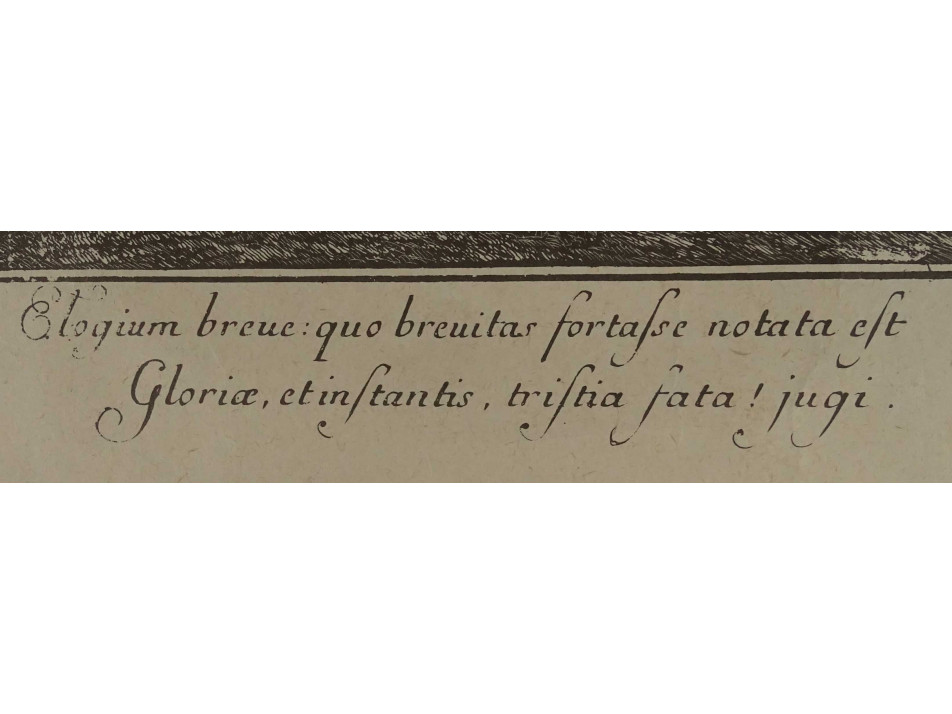 Elogium breue: quo breuitas fortaſse notata eſt
Gloriæ, et inſtantis, triſtia fata! jugi.